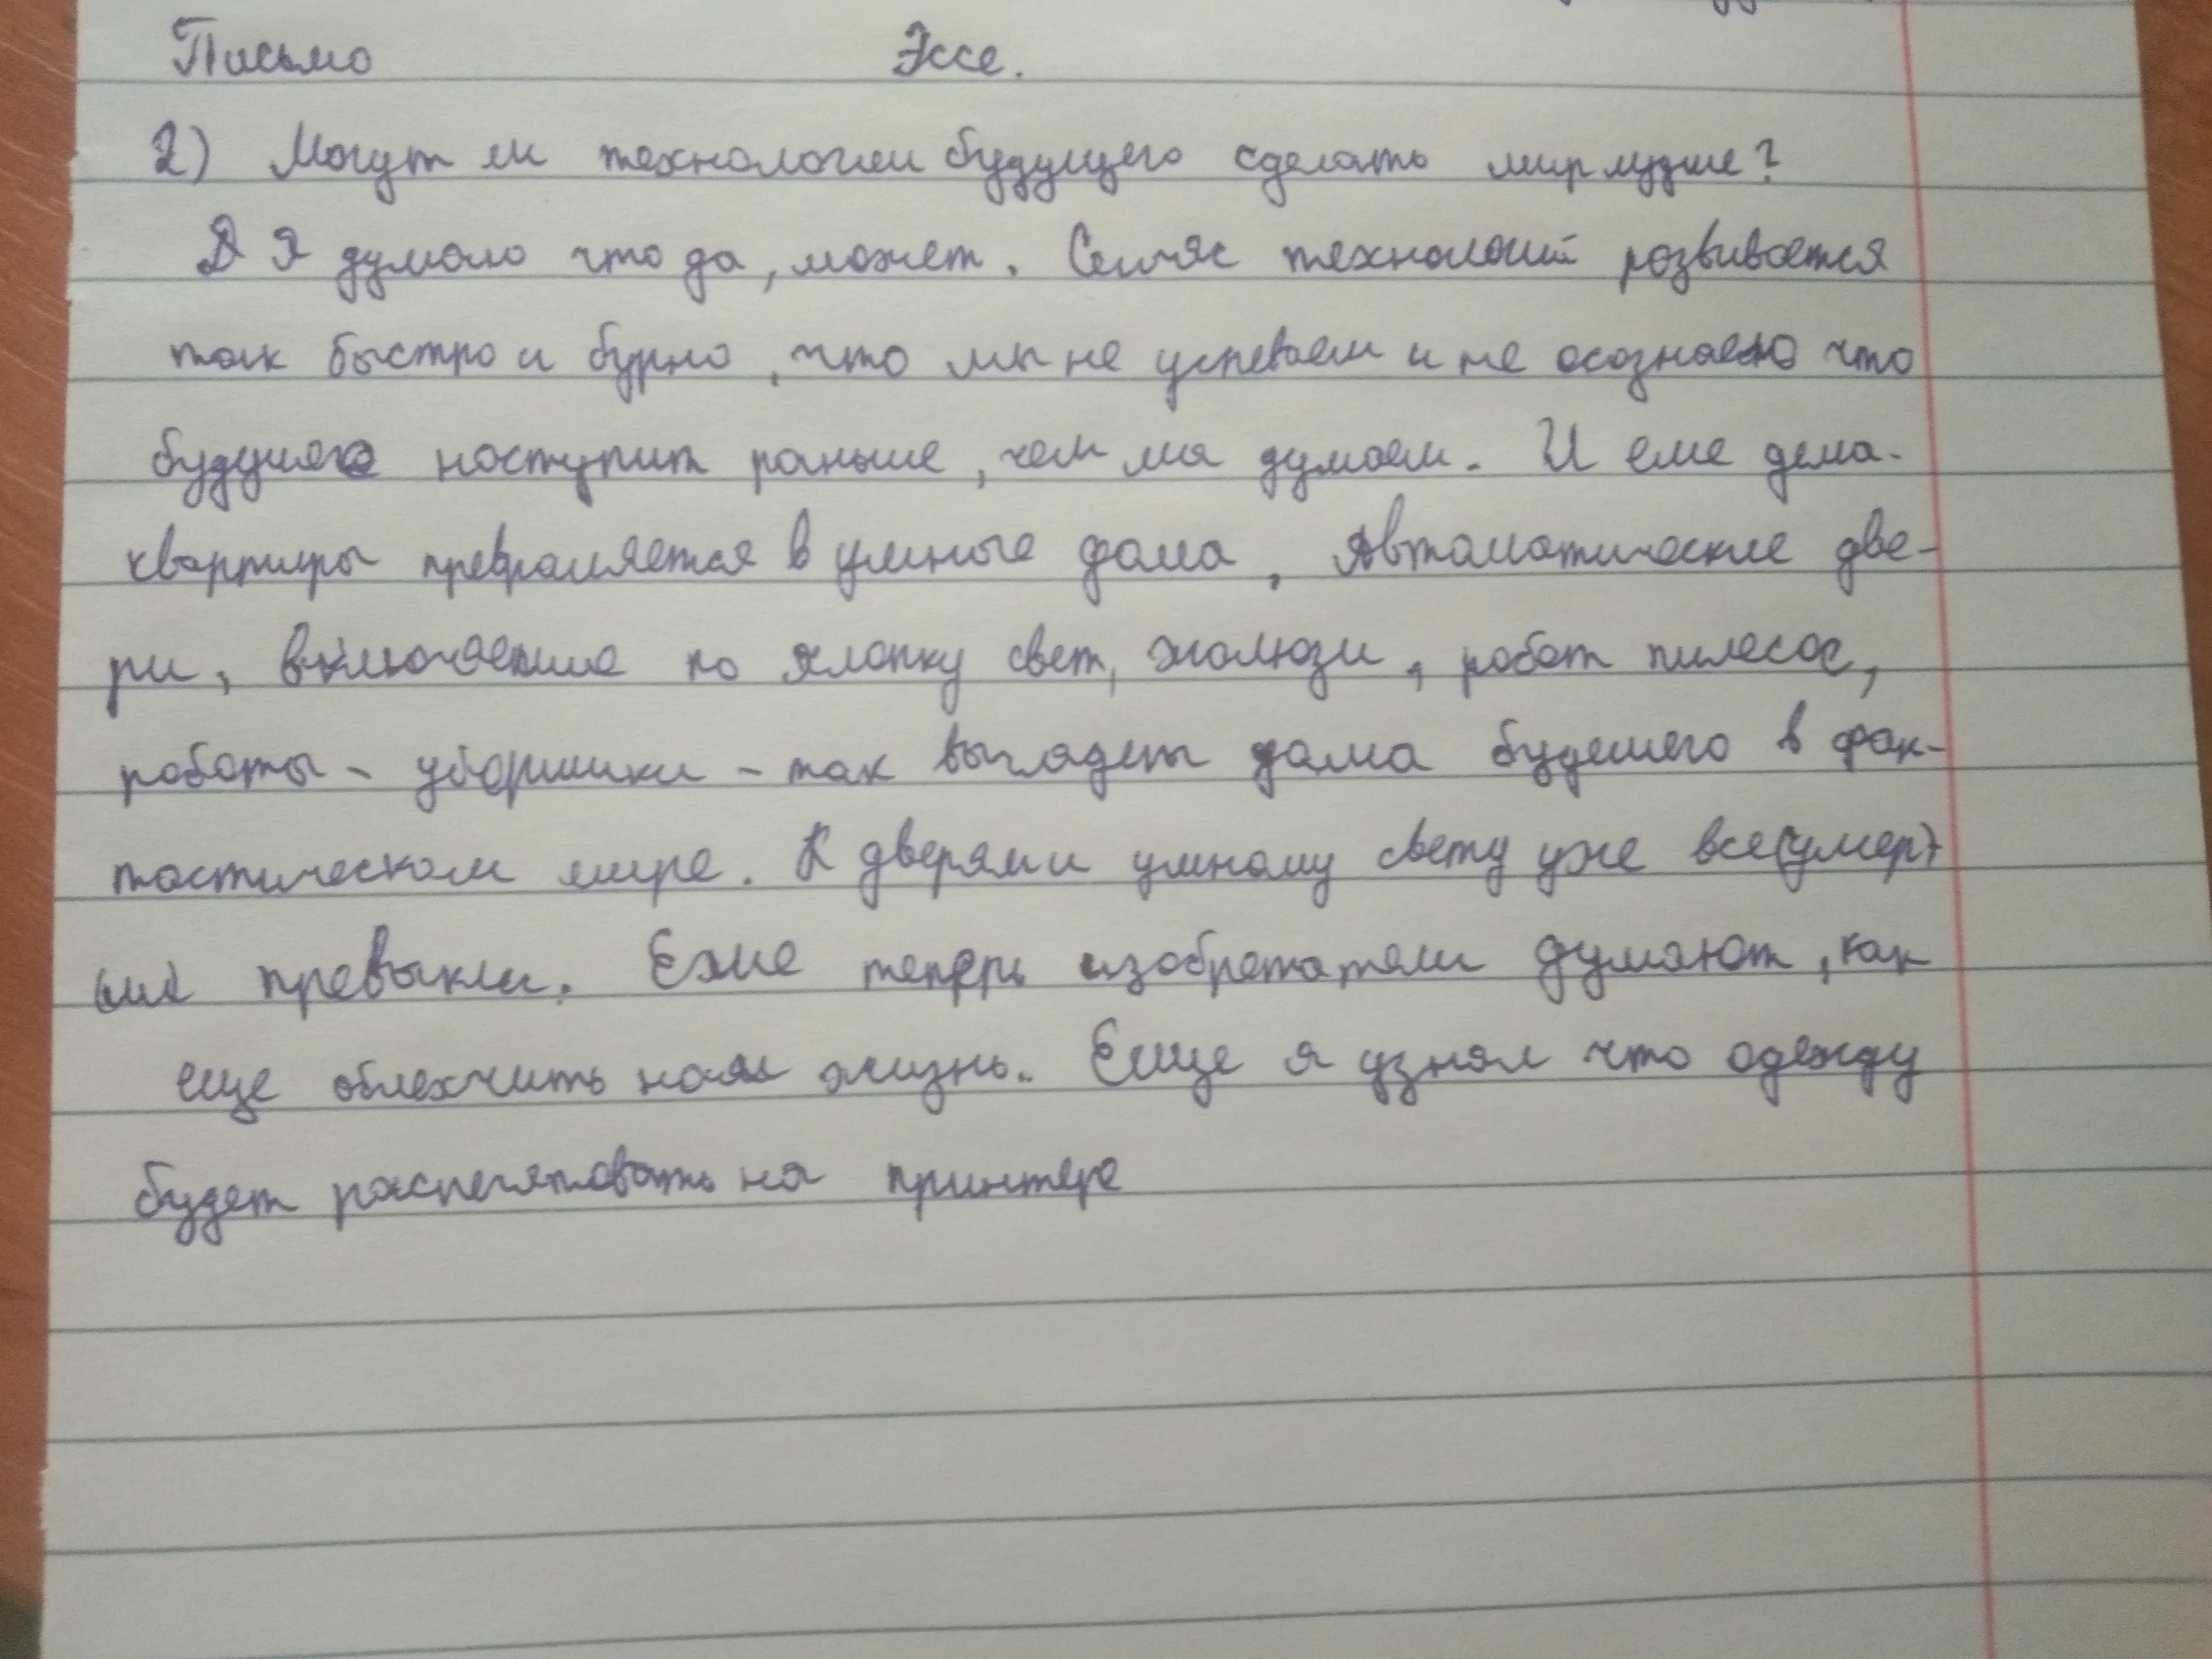 Письмо Эссе.
2) Могут ли технологии будущего сделать мир лучше?
Я думаю что да, может. Сейчяс технологий розвивается
так быстро и бурно, что мы не успеваем и не осознаем что
будущее наступит раньше, чем мы думаем. И еще дома-
квартиры преврашяется в умные дома, Автоматические две-
ри, включяешие по хлопку свет, жалюзи, робот пилесос,
роботы - уборшики - так выглядет дома будещего в фан-
тастическом мире. К дверям и умному свету уже все
превыкли. Ехще теперь изобретатели думают, как
еще облехчить наш жизнь. Еще я узнал что одежду
будет распечятовать на принтере